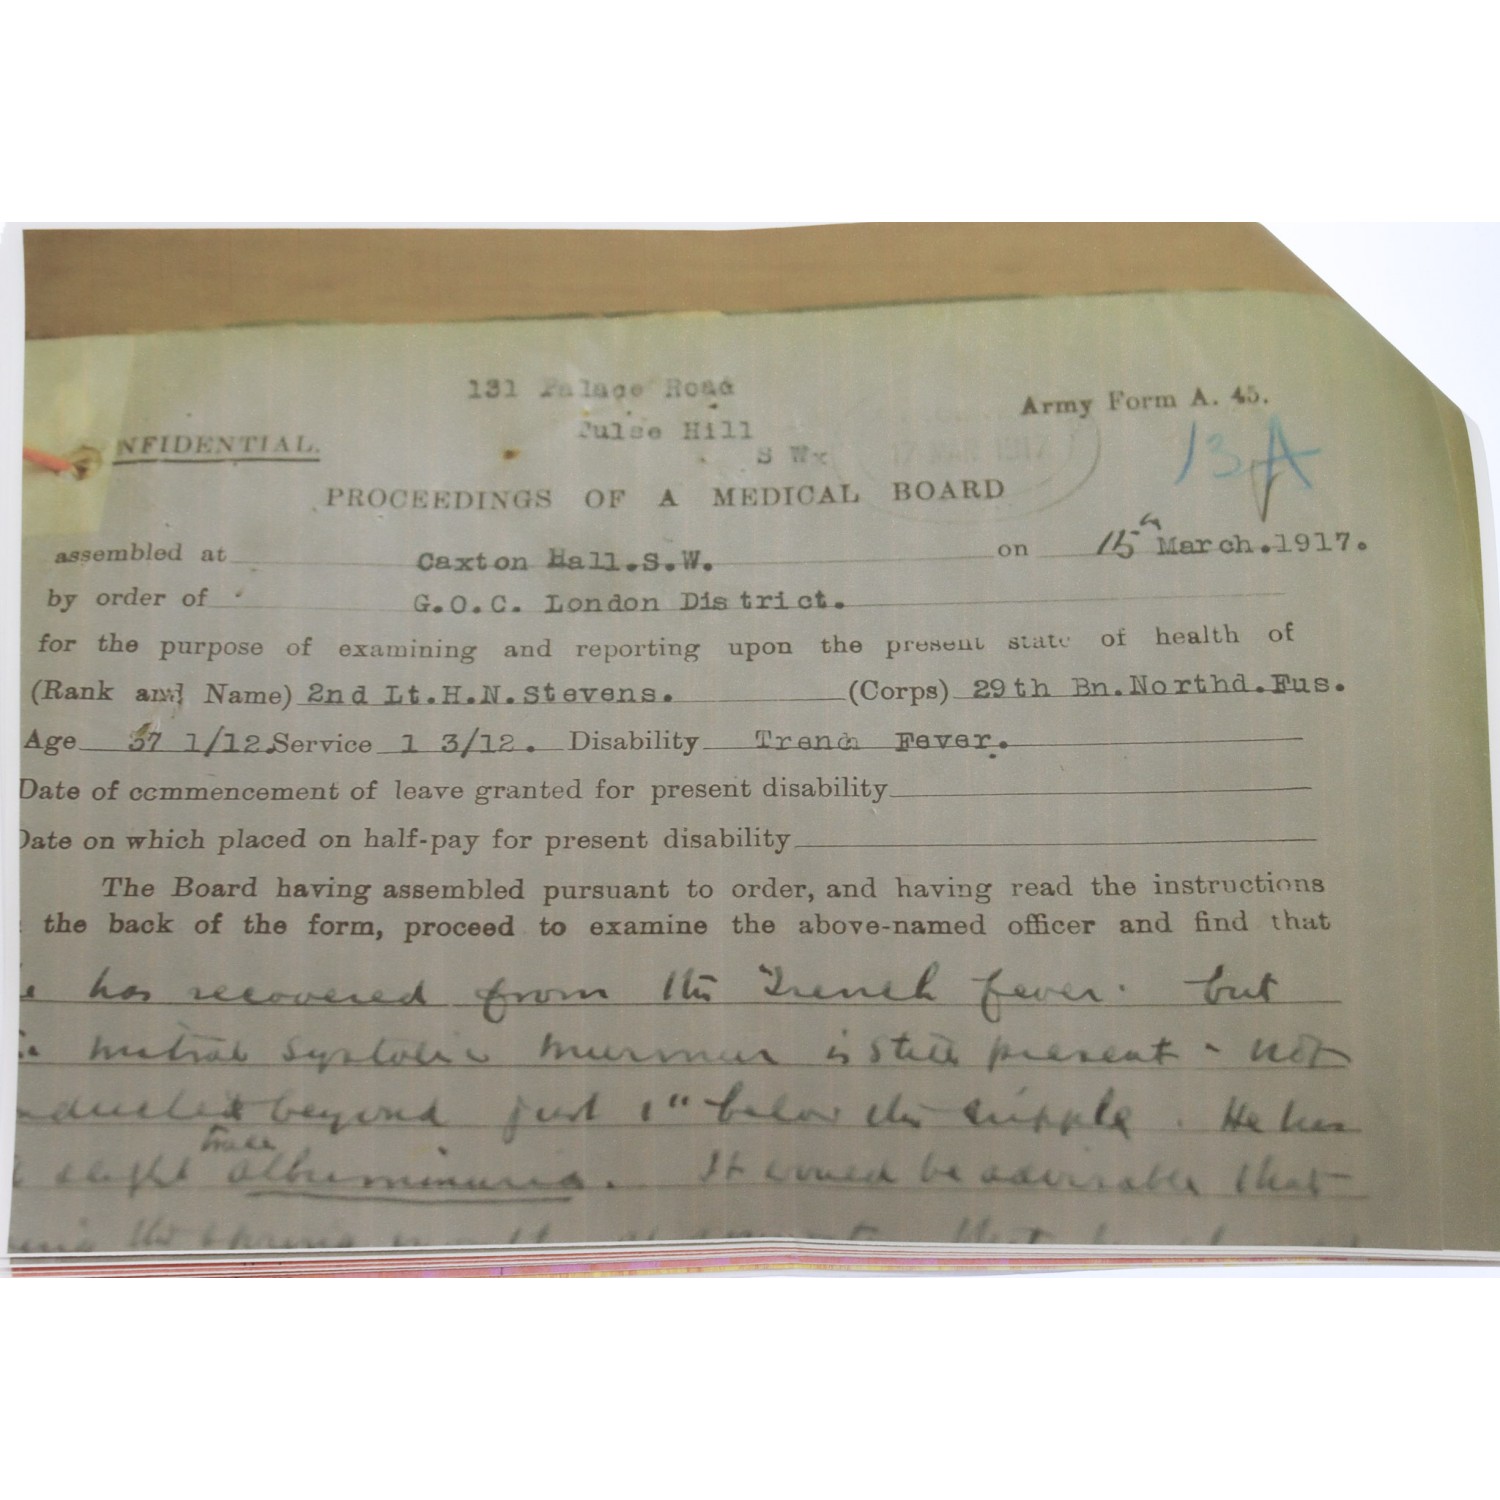 131 Palace Road
Tulse Hill
S W
Army Form A. 45.
NFIDENTIAL.
17 MAR 1917
13A
PROCEEDINGS OF A MEDICAL BOARD
assembled at Caxton Hall.S.W. on 15th March.1917.
by order of G.O.C. London District.
for the purpose of examining and reporting upon the present state of health of
(Rank and Name) 2nd Lt.H.N.Stevens. (Corps) 29th Bn.Northd.Fus.
Age 37 1/12.Service 1 3/12. Disability Trench Fever.
Date of commencement of leave granted for present disability
Date on which placed on half-pay for present disability
The Board having assembled pursuant to order, and having read the instructions
the back of the form, proceed to examine the above-named officer and find that
he has recovered from the Trench fever. but
mitral systolic murmur is still present - not
nducted beyond just 1" below the nipple. He has
slight trace albuminuria. It would be advisable that
the spring that